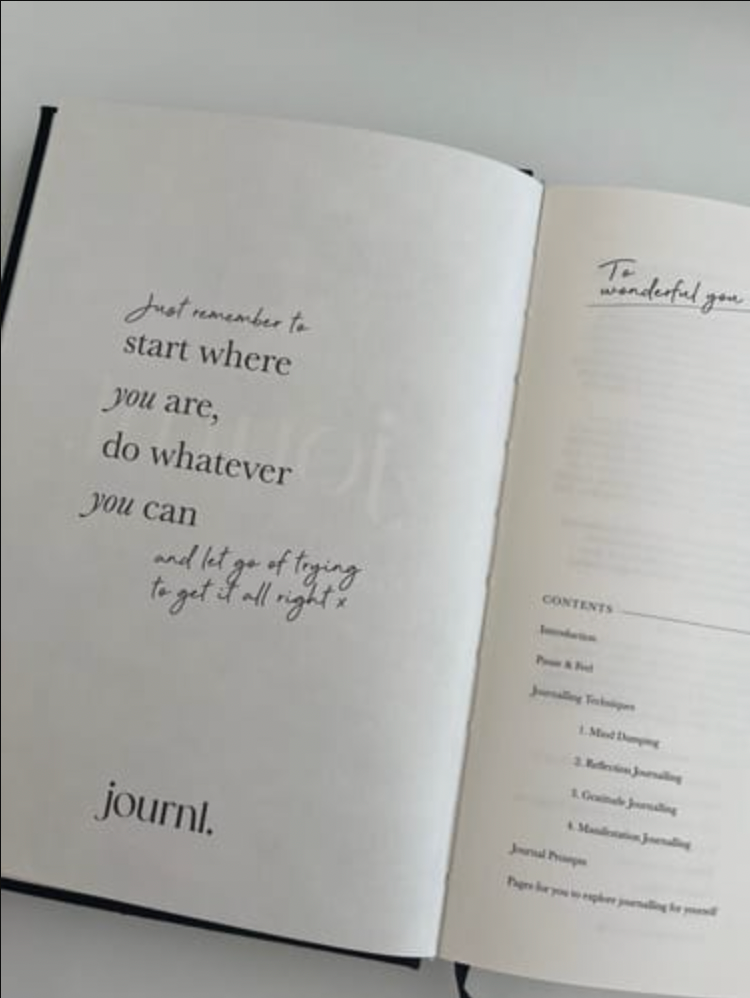 Just remember to
start where
you are,
do whatever
you can
and let go of trying
to get it all right x
journl.
To
wonderful you
CONTENTS
Introduction
Pause & Feel
Journalling Techniques
1. Mind Dumping
2. Reflection Journalling
3. Gratitude Journalling
4. Manifestation Journalling
Journal Prompts
Pages for you to explore journalling for yourself